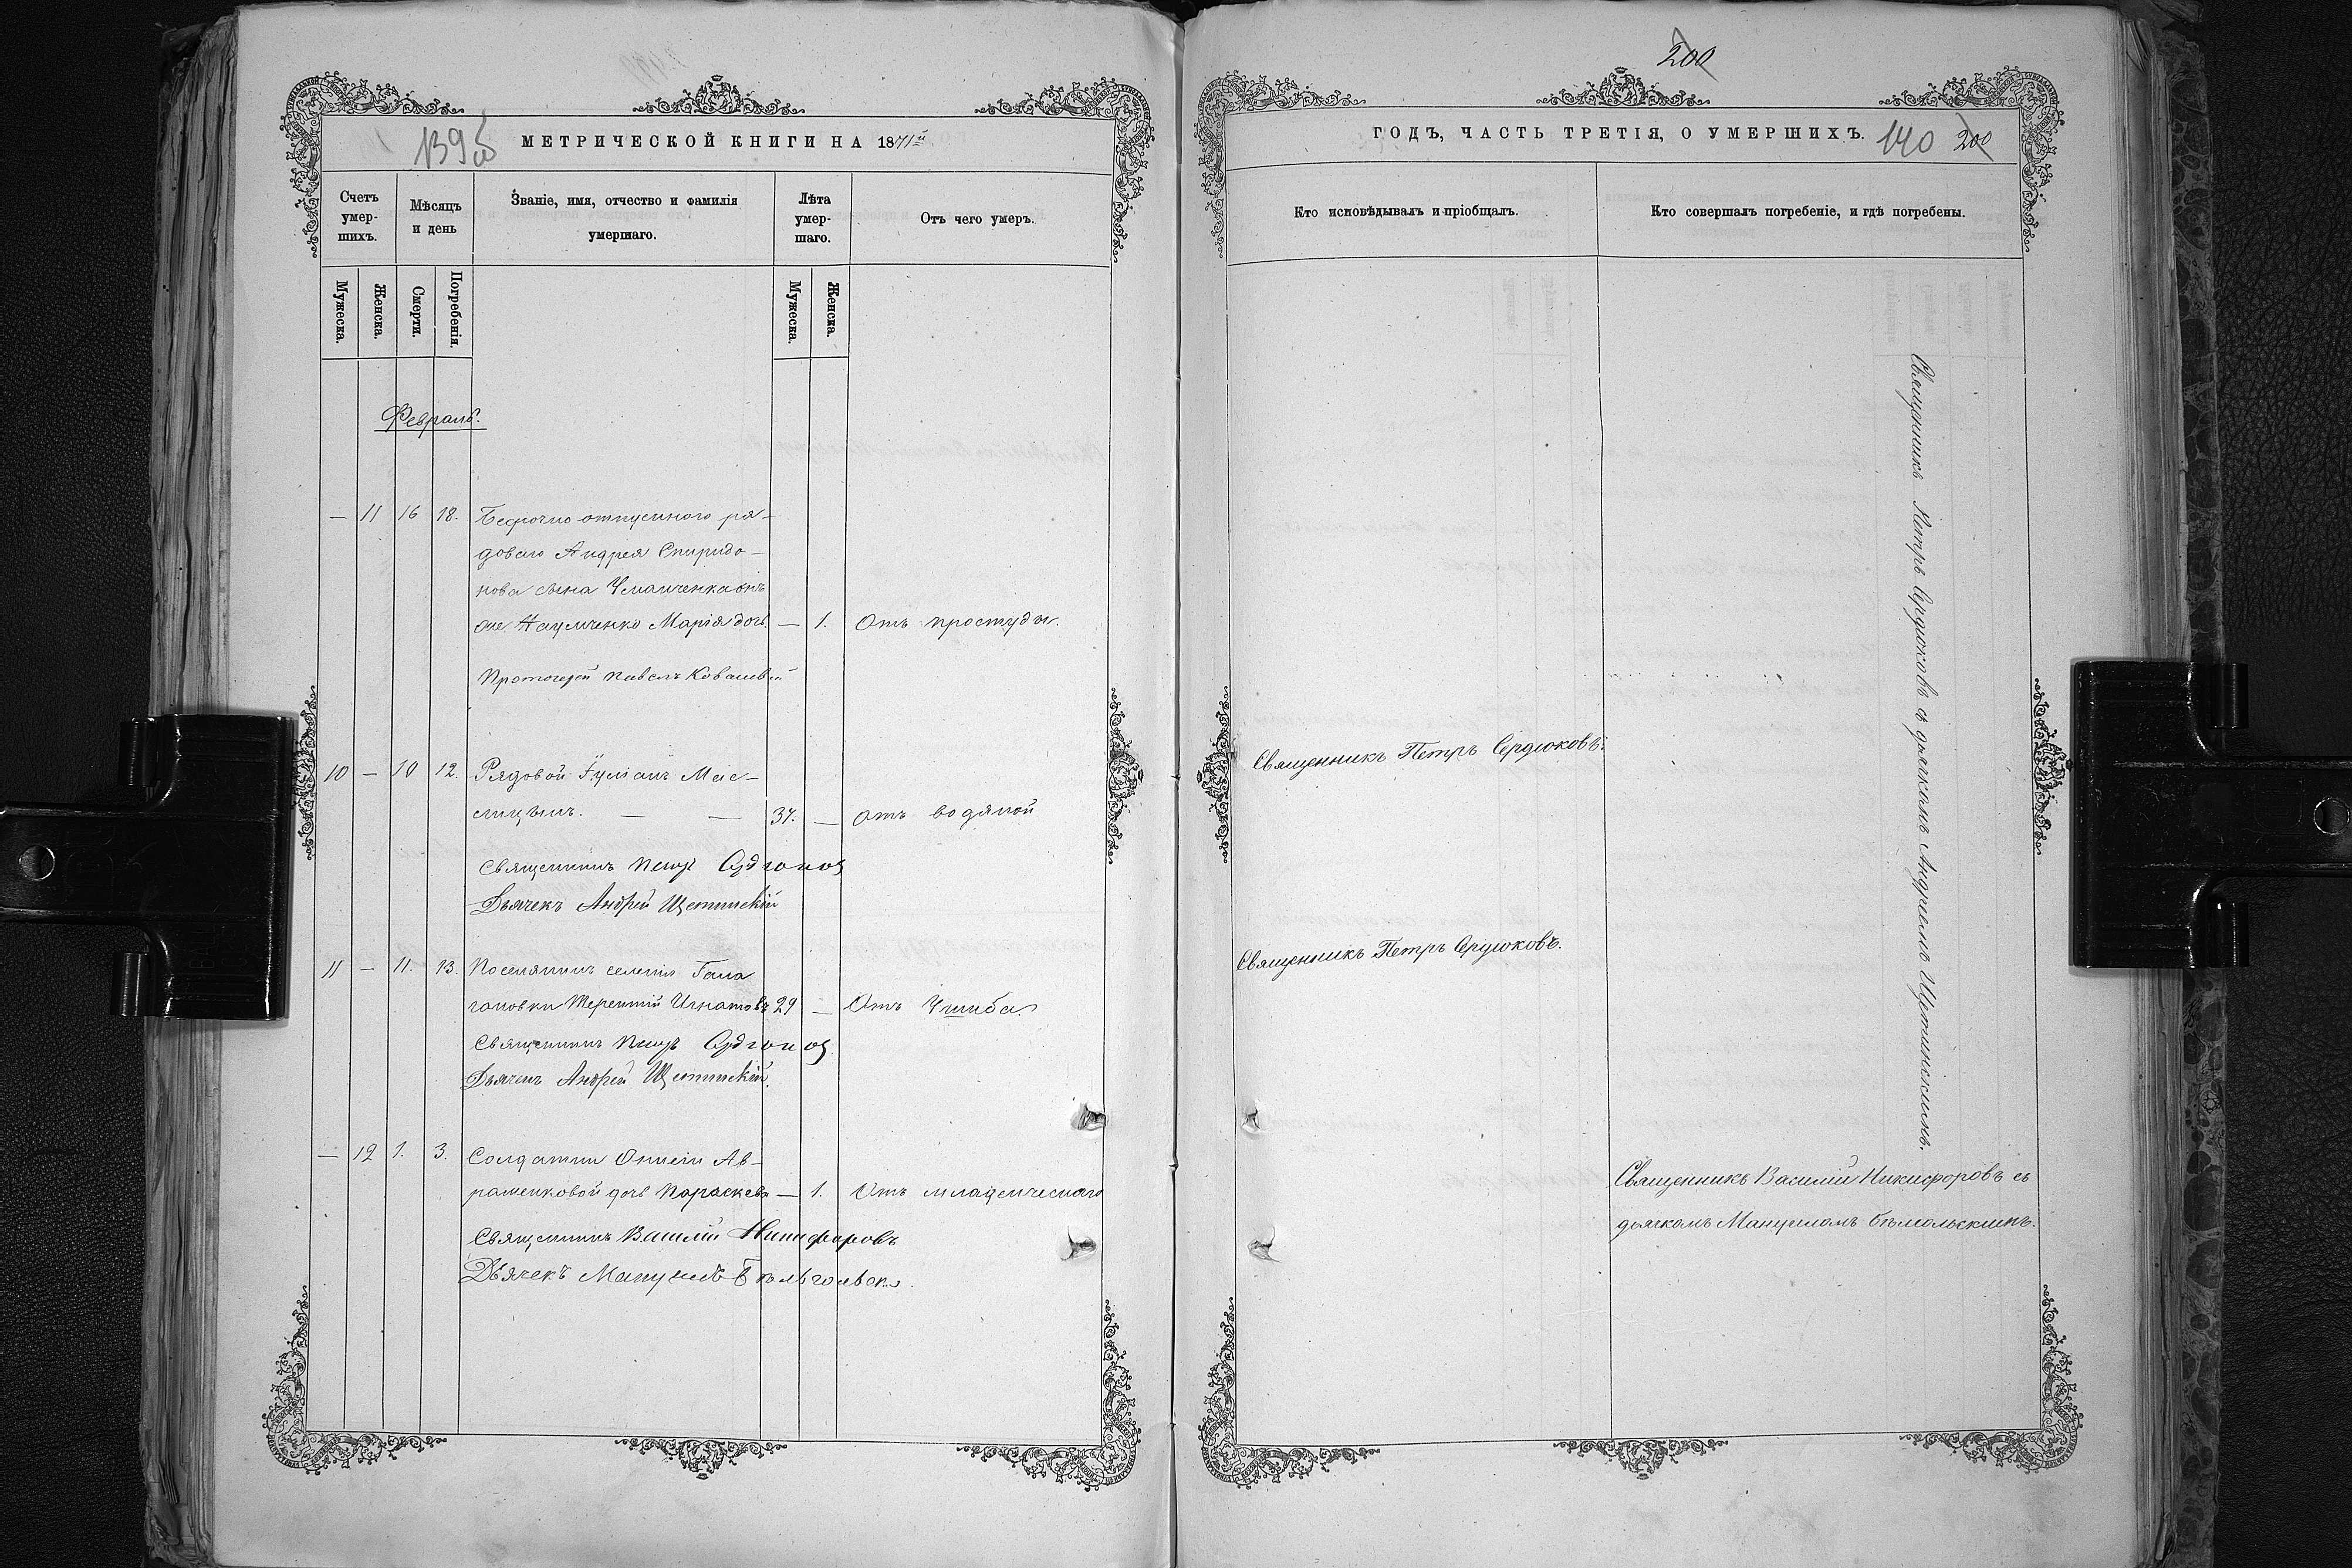 139 об
МЕТРИЧЕСКОЙ КНИГИ НА 1871й
Счетъ умер-шихъ.
Мѣсяцъ и день
Званіе, имя, отчество и фамилія умершаго.
Лѣта умер-шаго.
Отъ чего умеръ.
Мужеска.
Женска.
Смерти.
Погребенія.
Мужеска.
Женска.
Февраль.
— 11 16 18. Безсрочно отпускного ря-
доваго Андрея Спиридо-
нова сына Уманченка онъ
же Наумченко Марія дочь — 1. Отъ простуды.
Протоіерей Павелъ
10 — 10 12. Рядовой Гуліанъ Мас-
лицынъ. — — 37. — отъ водяной
Священникъ Петръ Сердюковъ
Дьячекъ Андрей Щетинскій
11 — 11. 13. Поселянинъ селенія Гала
гановки Терентій Игнатовъ 29 — Отъ Ушиба.
Священникъ Петръ Сердюковъ
Дьячекъ Андрей Щетинскій.
— 12 1. 3. Солдатки Ав-
раменковой дочь Параскева — 1. Отъ младенческаго
Священникъ Василій Никифоровъ
Дьячекъ Мануилъ
200
ГОДЪ, ЧАСТЬ ТРЕТІЯ, О УМЕРШИХЪ.
140 200
Кто исповѣдывалъ и пріобщалъ.
Кто совершалъ погребеніе, и гдѣ погребены.
Священникъ Петръ Сердюковъ.
Священникъ Петръ Сердюковъ.
Священникъ Петръ Сердюковъ съ дьячкомъ Андреемъ Щетинскимъ.
Священникъ Василій Никифоровъ съ
дьячкомъ Мануиломъ